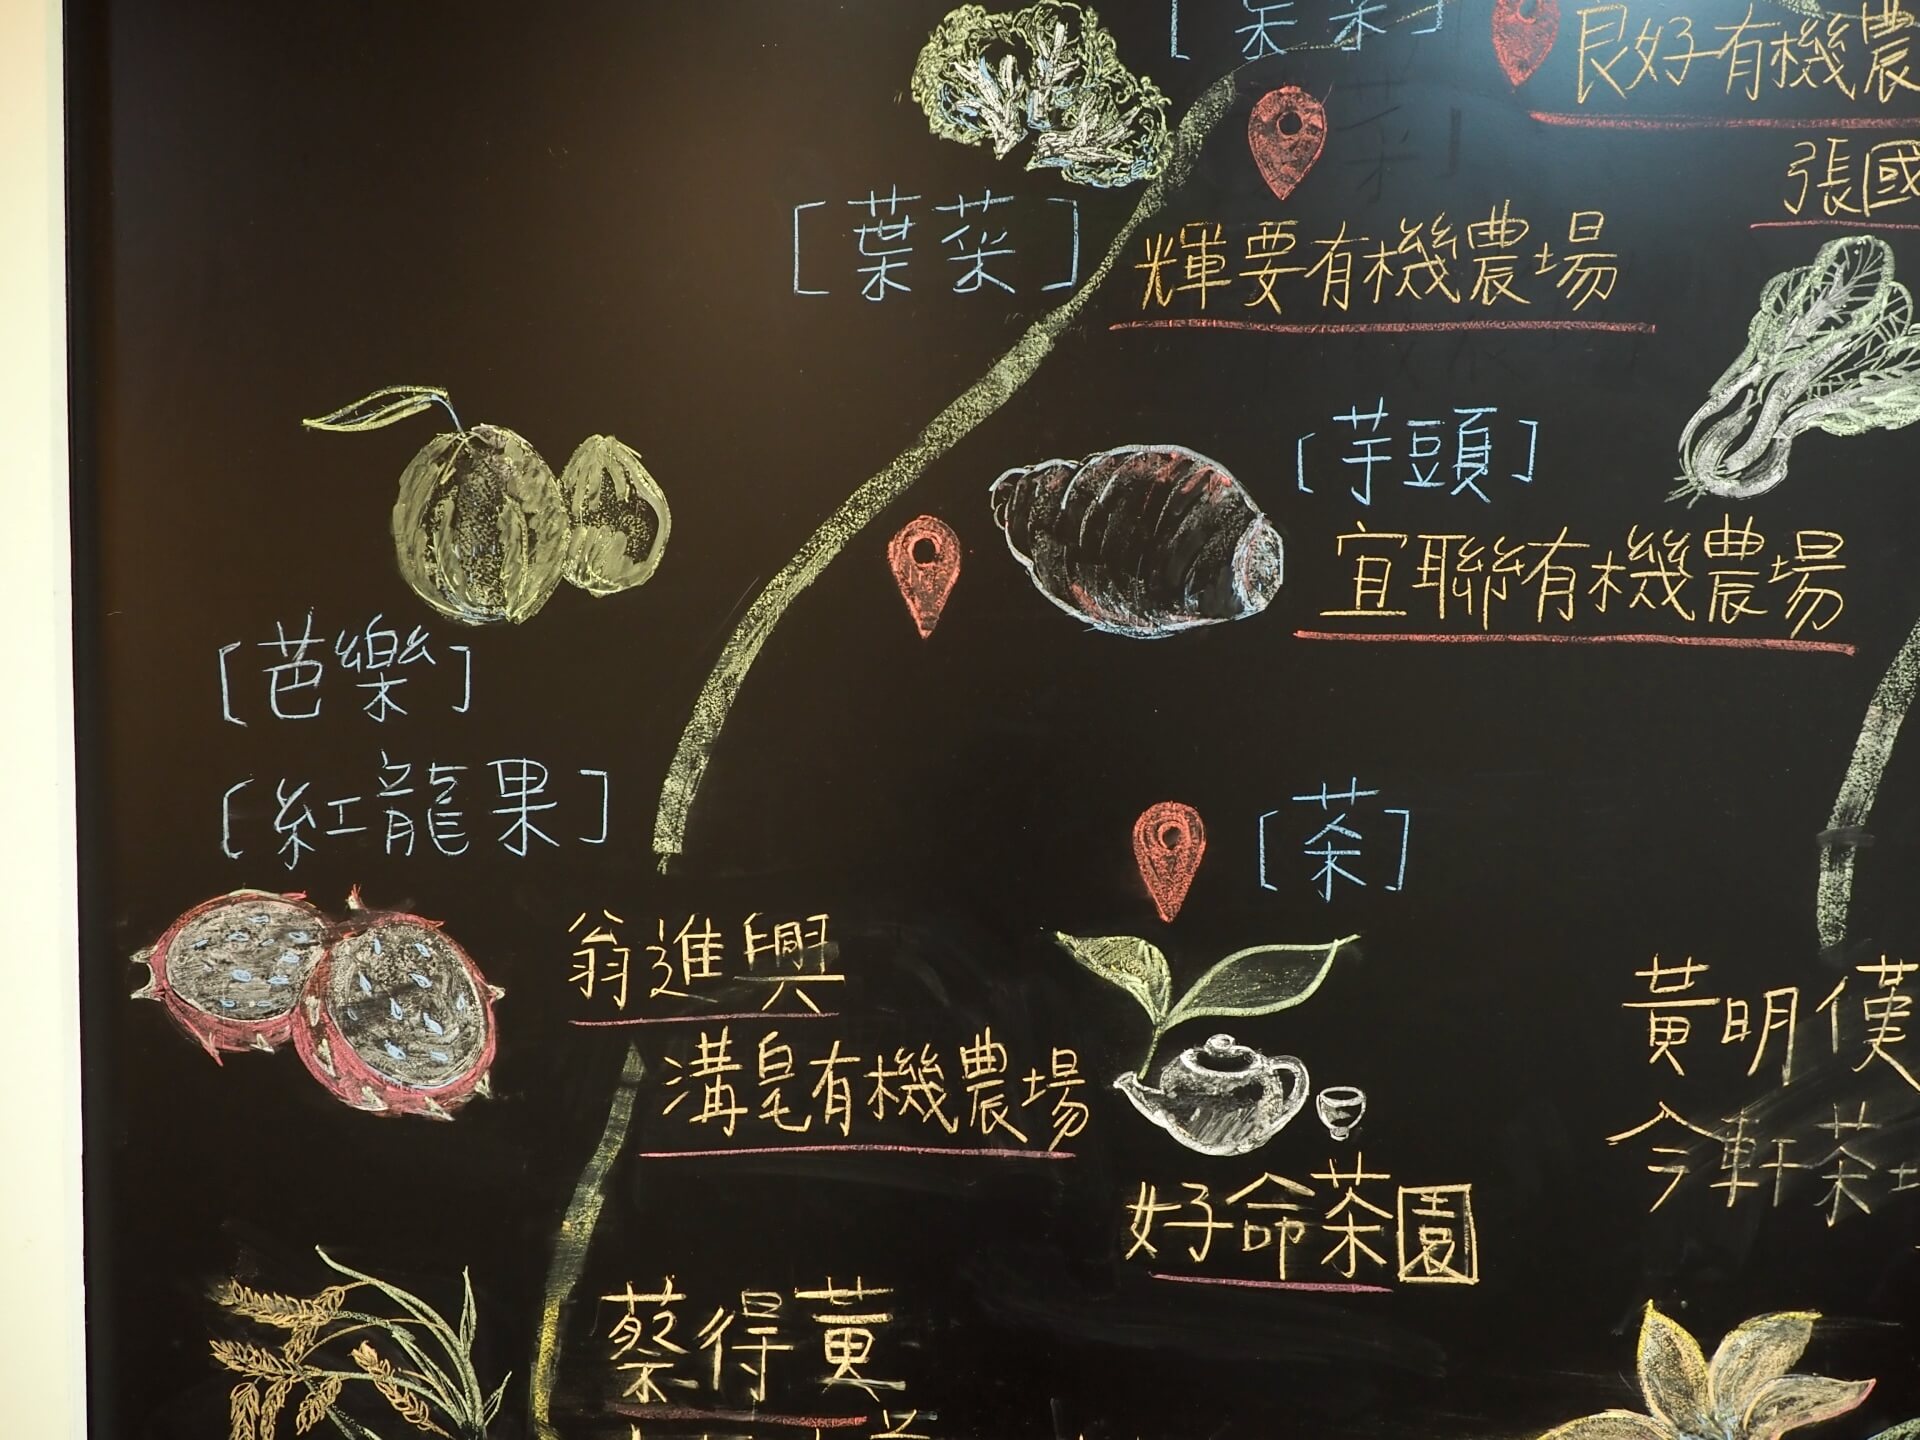 良好有機農
張國
[葉菜]
輝要有機農場
[芋頭]
宜聯有機農場
[芭樂]
[紅龍果]
[茶]
翁進興
溝皂有機農場
好命茶園
黃明僅
今軒茶
蔡得黃